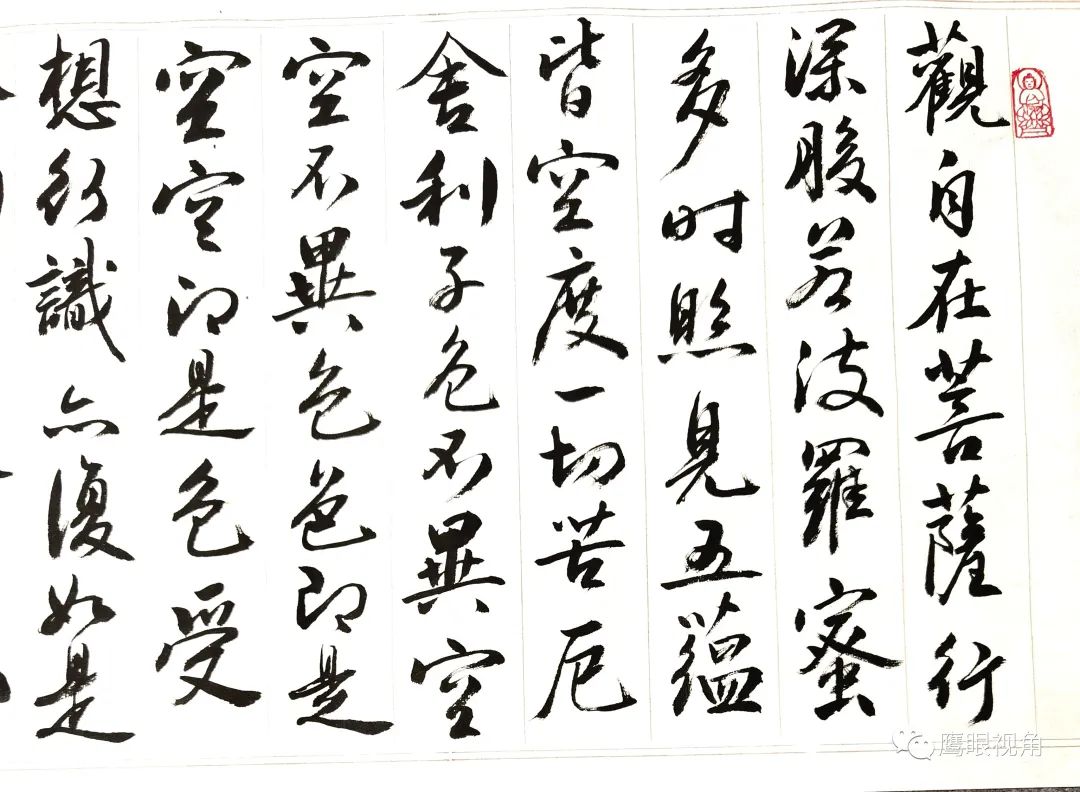 觀自在菩薩行
深般若波羅蜜
多时照見五蘊
皆空度一切苦厄
舍利子色不異空
空不異色色即是
空空即是色受
想行識亦復如是
鹰眼视角